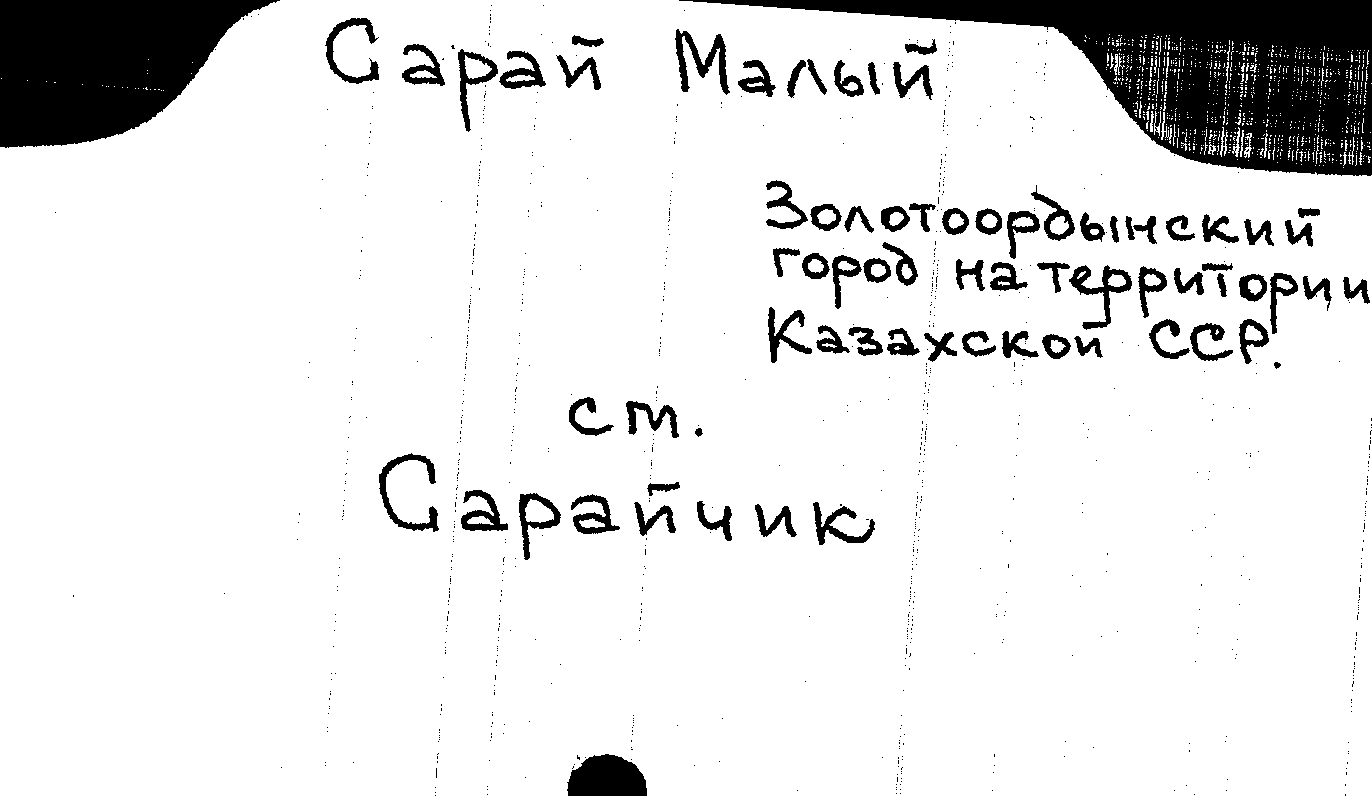 Сарай Малый
Золотоордынский
город на территории
Казахской ССР.
см.
Сарайчик